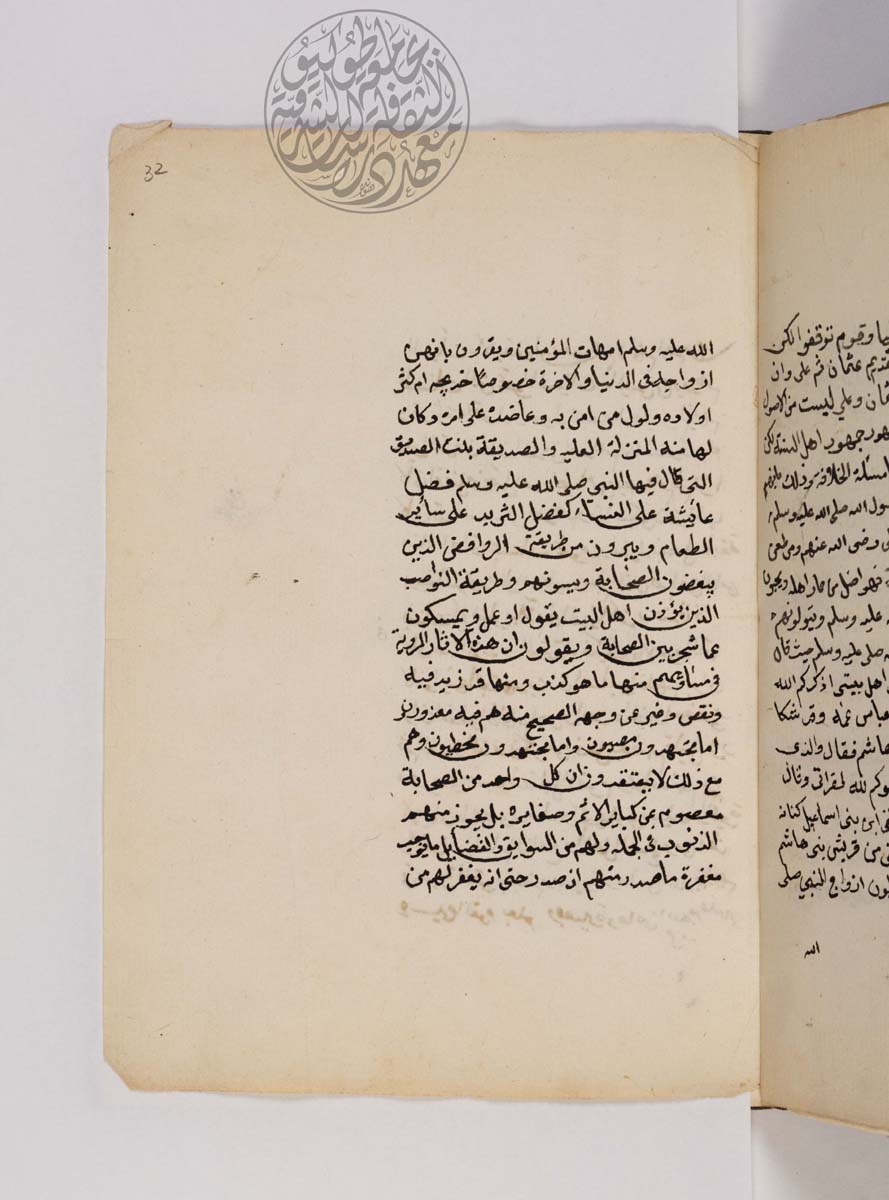 32
الله عليه وسلم امهات المؤمنين ويقرون بانهن
ازواجه فى الدنيا والاخرة خصوصًا خديجه ام كثر
اولاده ولول من امن به وعاضده على امره وكان
لها منه المنزلة العليه والصديقة بنت الصديق
التى قال فيها النبي صلى الله عليه وسلم فضل
عائيشة على النساء كفضل الثريد على سأير
الطعام ويبرون من طريقة الروافض الذين
يبغضون الصحابة ويسونهم وطريقة النواصب
الذين يؤذن اهل البيت يقول او عمل ويمسكون
عما شجر بين الصحابة ويقولون ان هذه الاثار المروية
فى مساويهم منها ما هو كذب ومنها قد زيد فيه
ونقص وغير عن وجهه الصحيح منه هم فيه معذورون
اما مجتهدون مصيبون واما مجتهدون مخطيون وهم
مع ذلك لا يعتقدون ان كل واحد من الصحابة
معصوم عن كباير الاثم وصغايره بل يجوز منهم
الذنوب فى الجمله ولهم من السوابق والفضايل ما يوجب
مغفرة ما صدر منهم ان صدر حتى انه يغفر لهم من
يا وقوم توقفوا لكن
تقديم عثمان ثم على وان
مان وعلي ليست من الاصول
جمهور اهل السنة لكن
مسئلة الخلافة وذلك
سول الله صلى الله عليه وسلم
رضى الله عنهم ومن طعن
فهو اضل من حمار اهله ويحبون
عليه وسلم ويتولونهم
صلى عليه وسلم حيث قال
اهل بيتى اذكركم الله
عباس عمه وقد شكا
هاشم فقال والذى
لله لقرابتى وقال
بنى اسماعيل كنانه
من قريش بنى هاشم
ازواج النبي صلى
الله